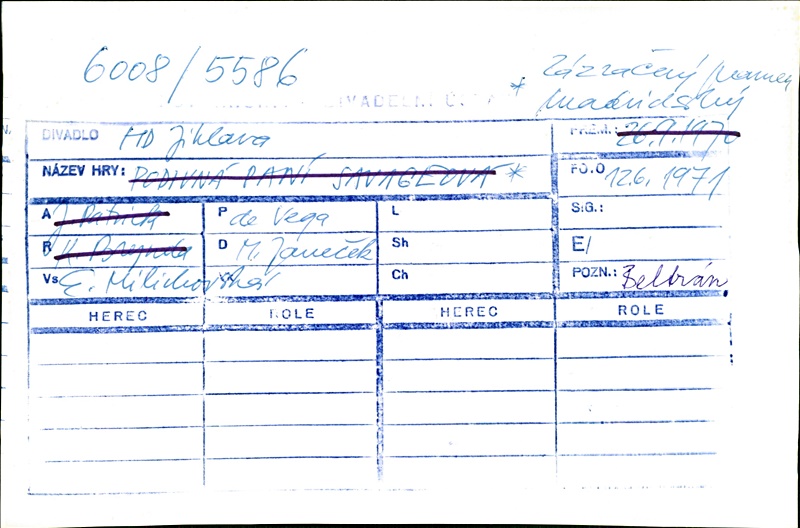 6008/5586
* Zázračný pramen
madridský
DIVADELNÍ Ú
DIVADLO HD Jihlava
PREM.: 26.9.1970
NÁZEV HRY: PODIVNÁ PANÍ SAVAGEOVÁ *
FO.O 12.6. 1971
A J. Patrick P de Vega L SiG.:
R D M. Janeček Sh E/
Vs E. Milichovská Ch POZN.: Beltrán
HEREC ROLE HEREC ROLE